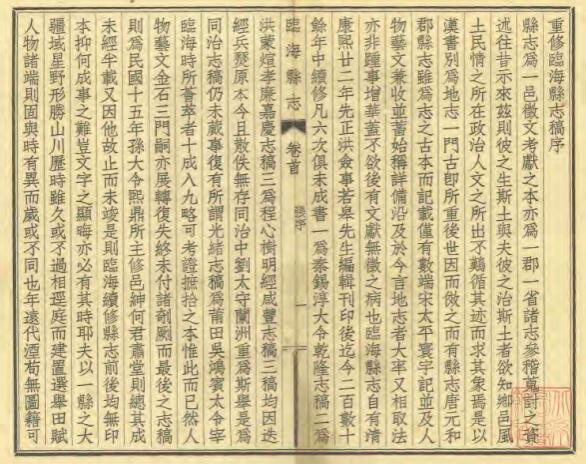 重修臨海縣志稿序
縣志為一邑徵文考獻之本亦為一郡一省諸志參稽蒐討之資
述往昔示來玆則彼之生斯土與夫彼之治斯土者欲知鄉邑風
土民情之所在政治人文之所出不鶪循其迹而求其象焉是以
漢書別為地志一門古即所重後世因而倣之而有縣志唐元和
郡縣志雖為志之古本而記載僅有數端宋太平寰宇記並及人
物藝文兼收並蓄始稱詳備沿及於今言地志者大率又相取法
亦非踵事增華蓋不欲後有文獻無徵之病也臨海縣志自有清
康熙廿二年先正洪僉事若皋先生編輯刊印後迄今二百數十
餘年中續修凡六次俱未成書一為秦錫淳大令乾隆志稿二為
臨海縣志 卷首 序 一
洪蒙煊孝廉嘉慶志稿三為程心樹明經咸豐志稿三稿均因迭
經兵燹原本今且散佚無存同治中劉太守蘭洲重為斯舉是為
同治志稿仍未蕆事復有所謂光緒志稿為莆田吳鴻賓大令宰
臨海時所薈萃者十成入九略可考證摭拾之本惟此而已然人
物藝文金石三門嗣亦展轉復失終未付諸剞劂而最後之志稿
則為民國十五年孫大令熙鼎所主修邑紳何君肅堂則總其成
未經半載又因他故止而未竣是則臨海續修縣志前後均無印
本抑何成事之難豈文字之顯晦亦必有其時耶夫以一縣之大
疆域星野形勝山川歷時雖久或不過相逕庭而建置選舉田賦
人物諸端則固與時有異而歲或不同也年遠代湮苟無圖籍可